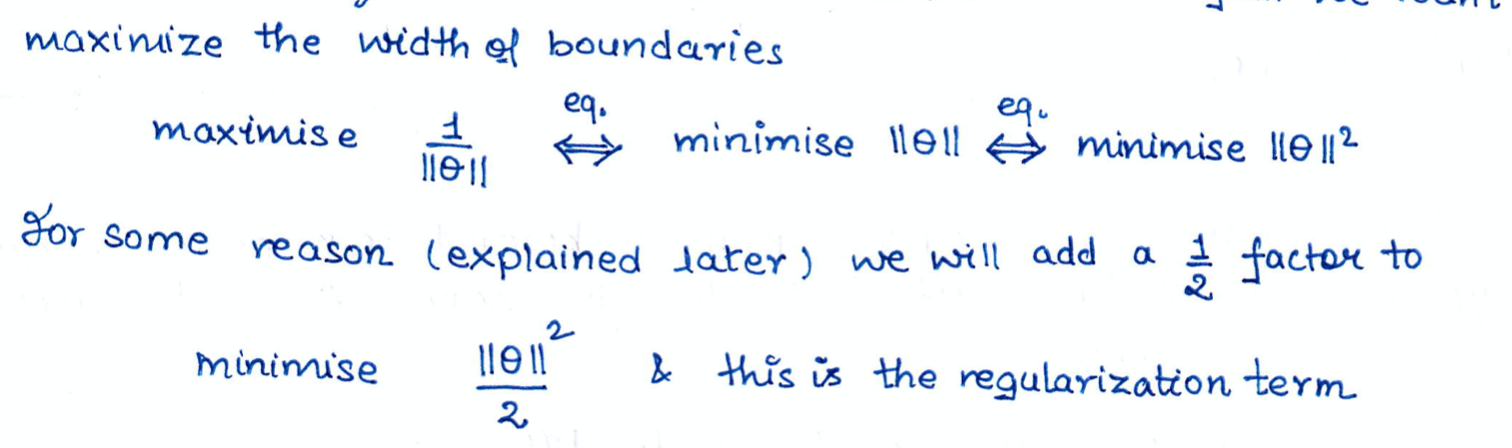 maximize the width of boundaries
maximise 1/||θ|| eq. ⟺ minimise ||θ|| eq. ⟺ minimise ||θ||²
for some reason (explained later) we will add a 1/2 factor to
minimise ||θ||²/2 & this is the regularization term